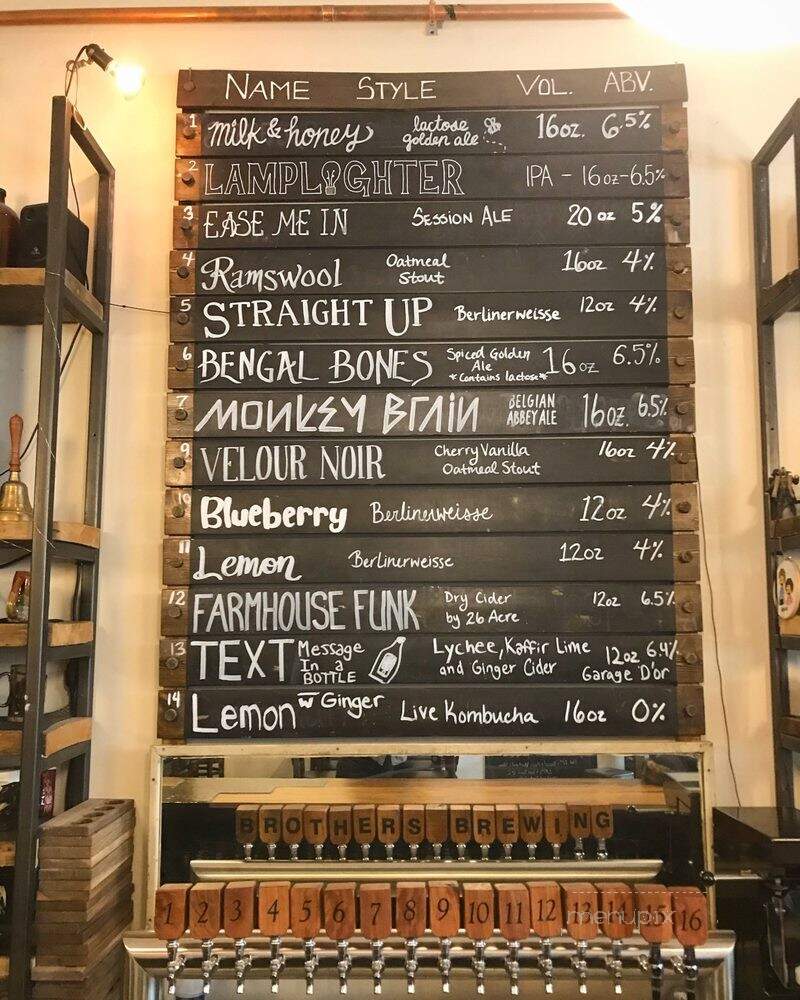 NAME STYLE VOL. ABV.
1 milk & honey lactose golden ale 16oz. 6.5%
2 LAMPLIGHTER IPA - 16oz-6.5%
3 EASE ME IN SESSION ALE 20 oz 5%
4 Ramswool Oatmeal Stout 16oz 4%
5 STRAIGHT UP Berlinerweisse 12oz 4%
6 BENGAL BONES Spiced Golden Ale *Contains lactose* 16oz 6.5%
7 MONKEY BRAIN BELGIAN ABBEY ALE 16oz. 6.5%
9 VELOUR NOIR Cherry Vanilla Oatmeal Stout 16oz 4%
10 Blueberry Berlinerweisse 12oz 4%
11 Lemon Berlinerweisse 12oz 4%
12 FARMHOUSE FUNK Dry Cider by 26 Acre 12oz 6.5%
13 TEXT Message In a BOTTLE Lychee, Kaffir Lime and Ginger Cider 12oz 6.4% Garage D'or
14 Lemon w Ginger Live Kombucha 16oz 0%
BROTHERS BREWING
1 2 3 4 5 6 7 8 9 10 11 12 13 14 15 16
menupix